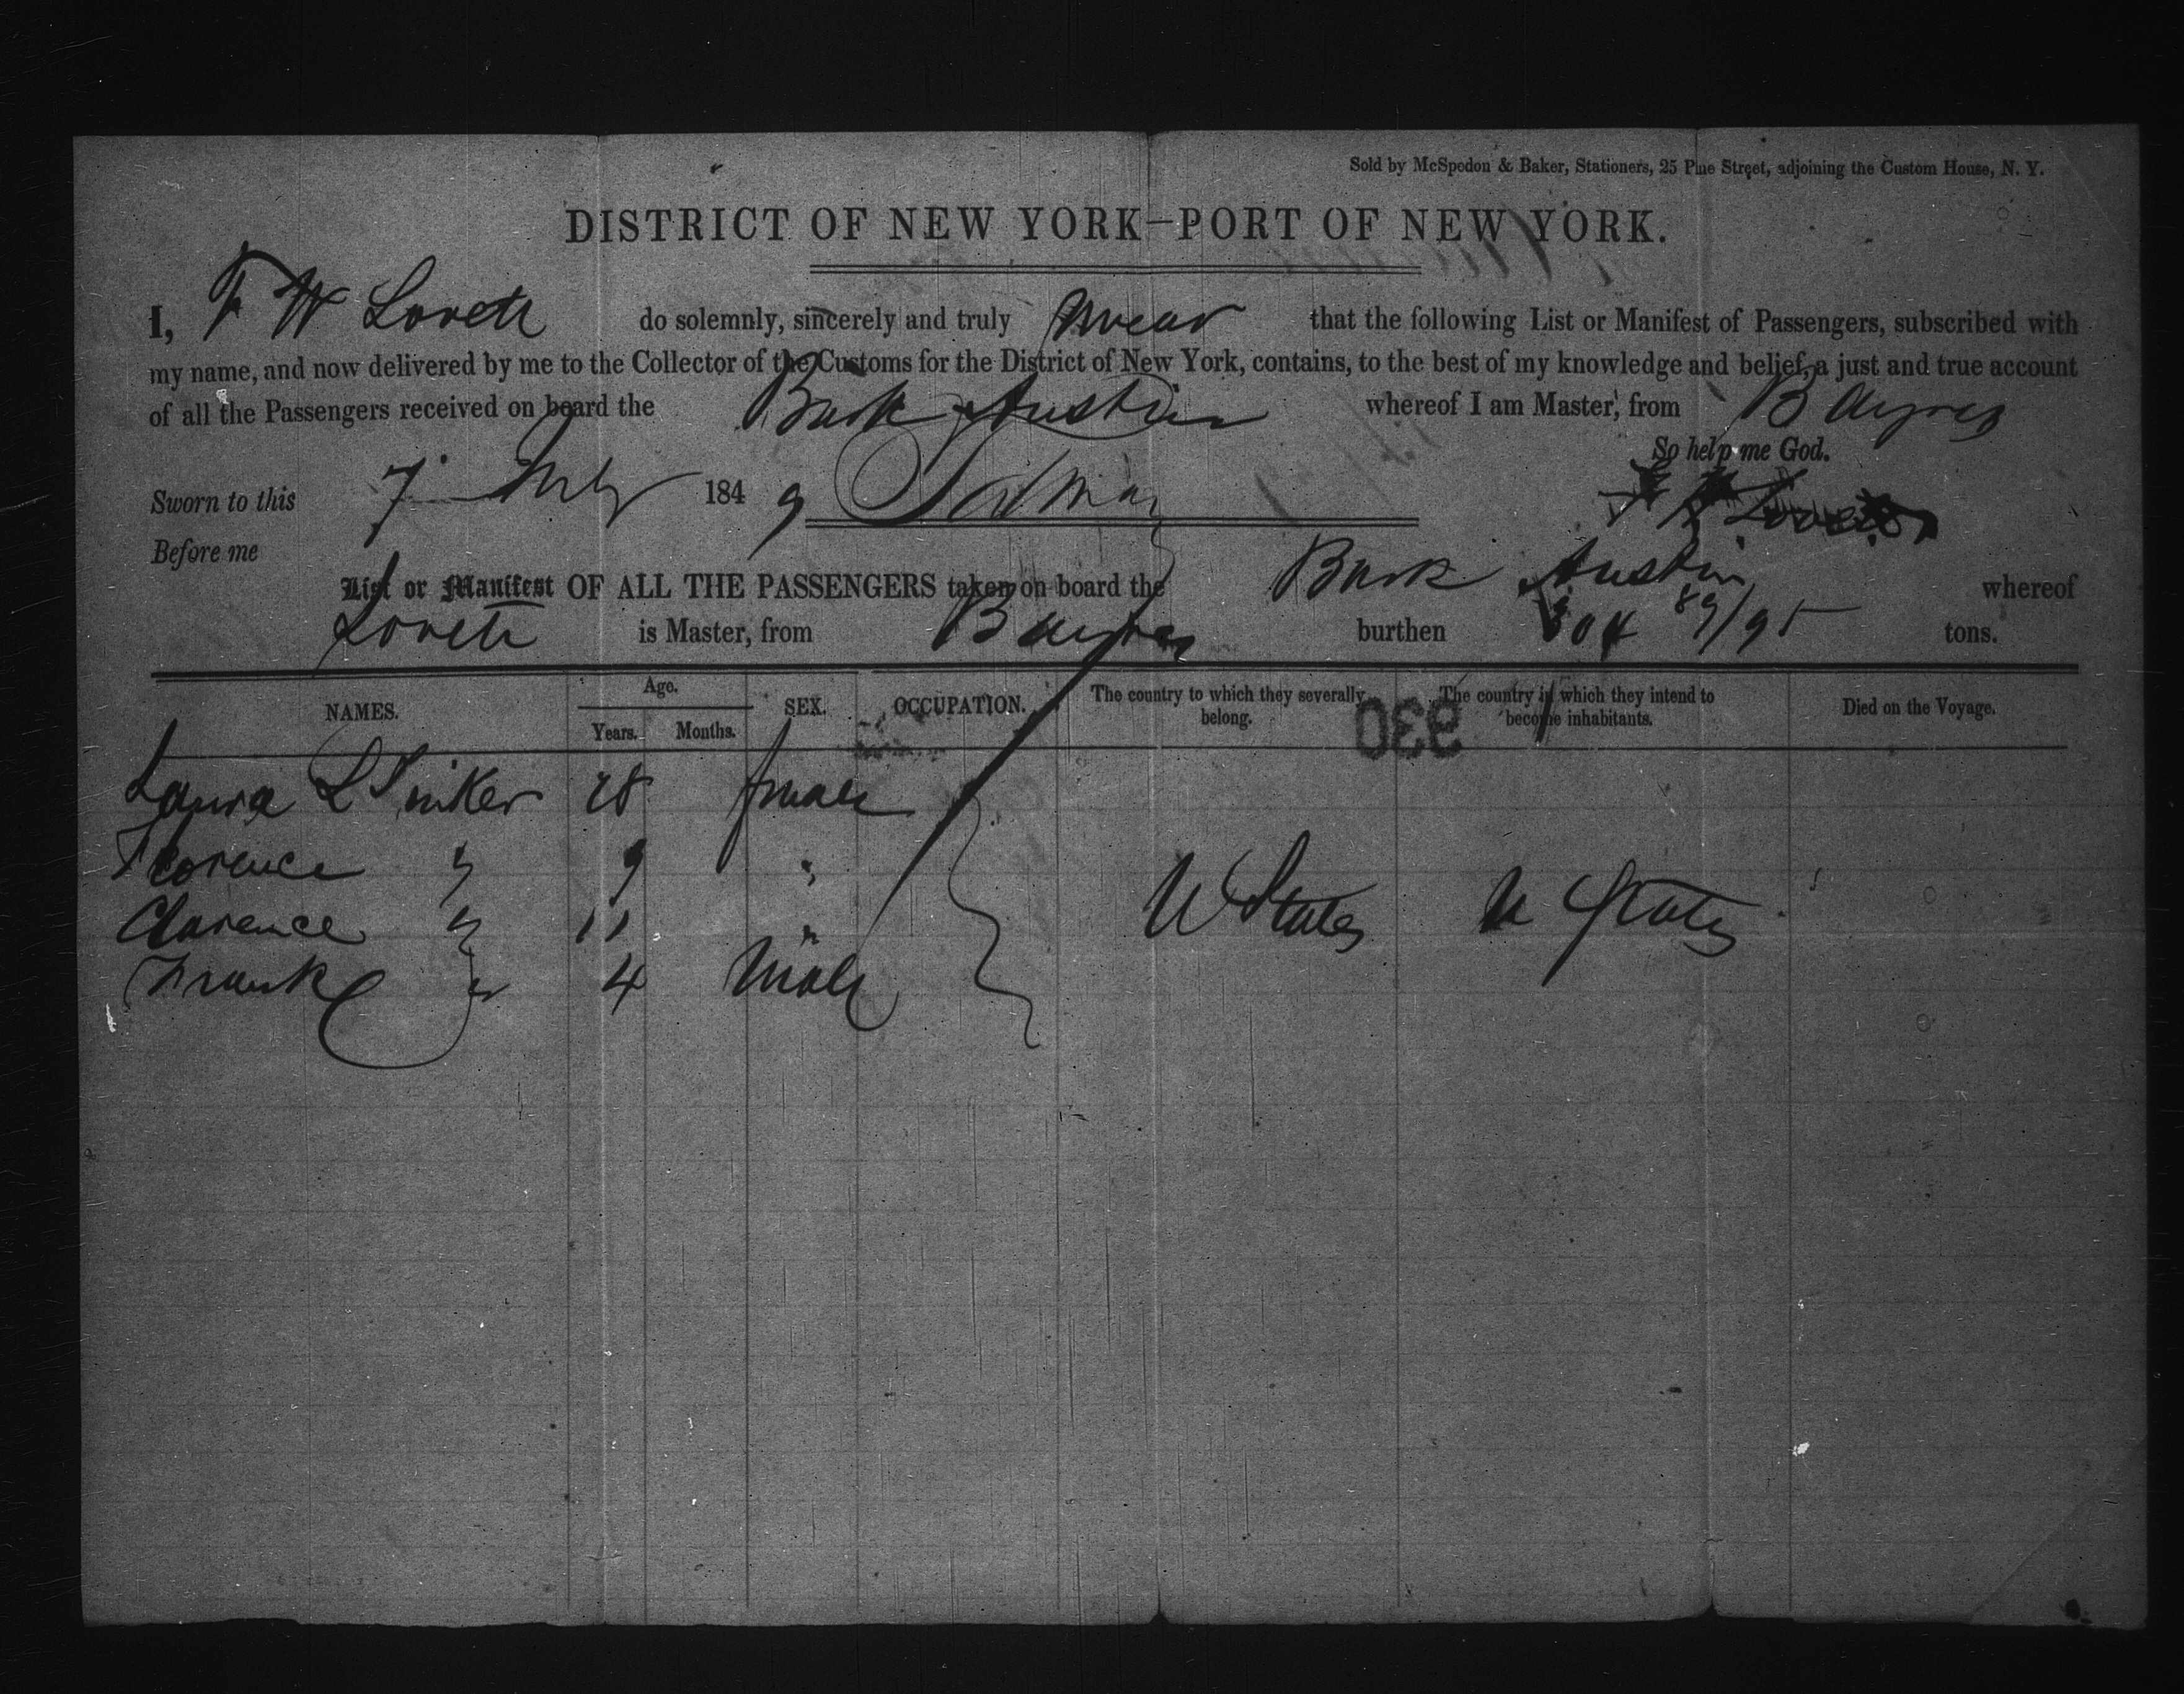 Sold by McSpedon & Baker, Stationers, 25 Pine Street, adjoining the Custom House, N. Y.
DISTRICT OF NEW YORK—PORT OF NEW YORK.
I, F W Lovett do solemnly, sincerely and truly swear that the following List or Manifest of Passengers, subscribed with
my name, and now delivered by me to the Collector of the Customs for the District of New York, contains, to the best of my knowledge and belief, a just and true account
of all the Passengers received on board the Bark Austin whereof I am Master, from B Ayres
So help me God.
Sworn to this 7 July 1849
Before me
List or Manifest OF ALL THE PASSENGERS taken on board the Bark Austin whereof
Lovett is Master, from B Ayres burthen 304 89/95 tons.
NAMES. Age. Years. Months. SEX. OCCUPATION. The country to which they severally belong. The country in which they intend to become inhabitants. Died on the Voyage.
930
Laura L 28 female
Florence " 9 "
Clarence " 11 " U States U States
Frank " 4 Male